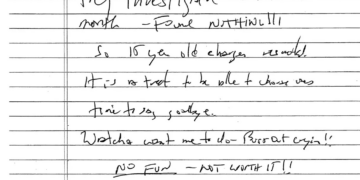 My Investigation
month - Found NOTHING!!!
So 15 year old charges revealed.
It is a treat to be able to choose ones
time to say goodbye.
Watcha want me to do - Burst out crying!!
NO FUN - NOT WORTH IT!!